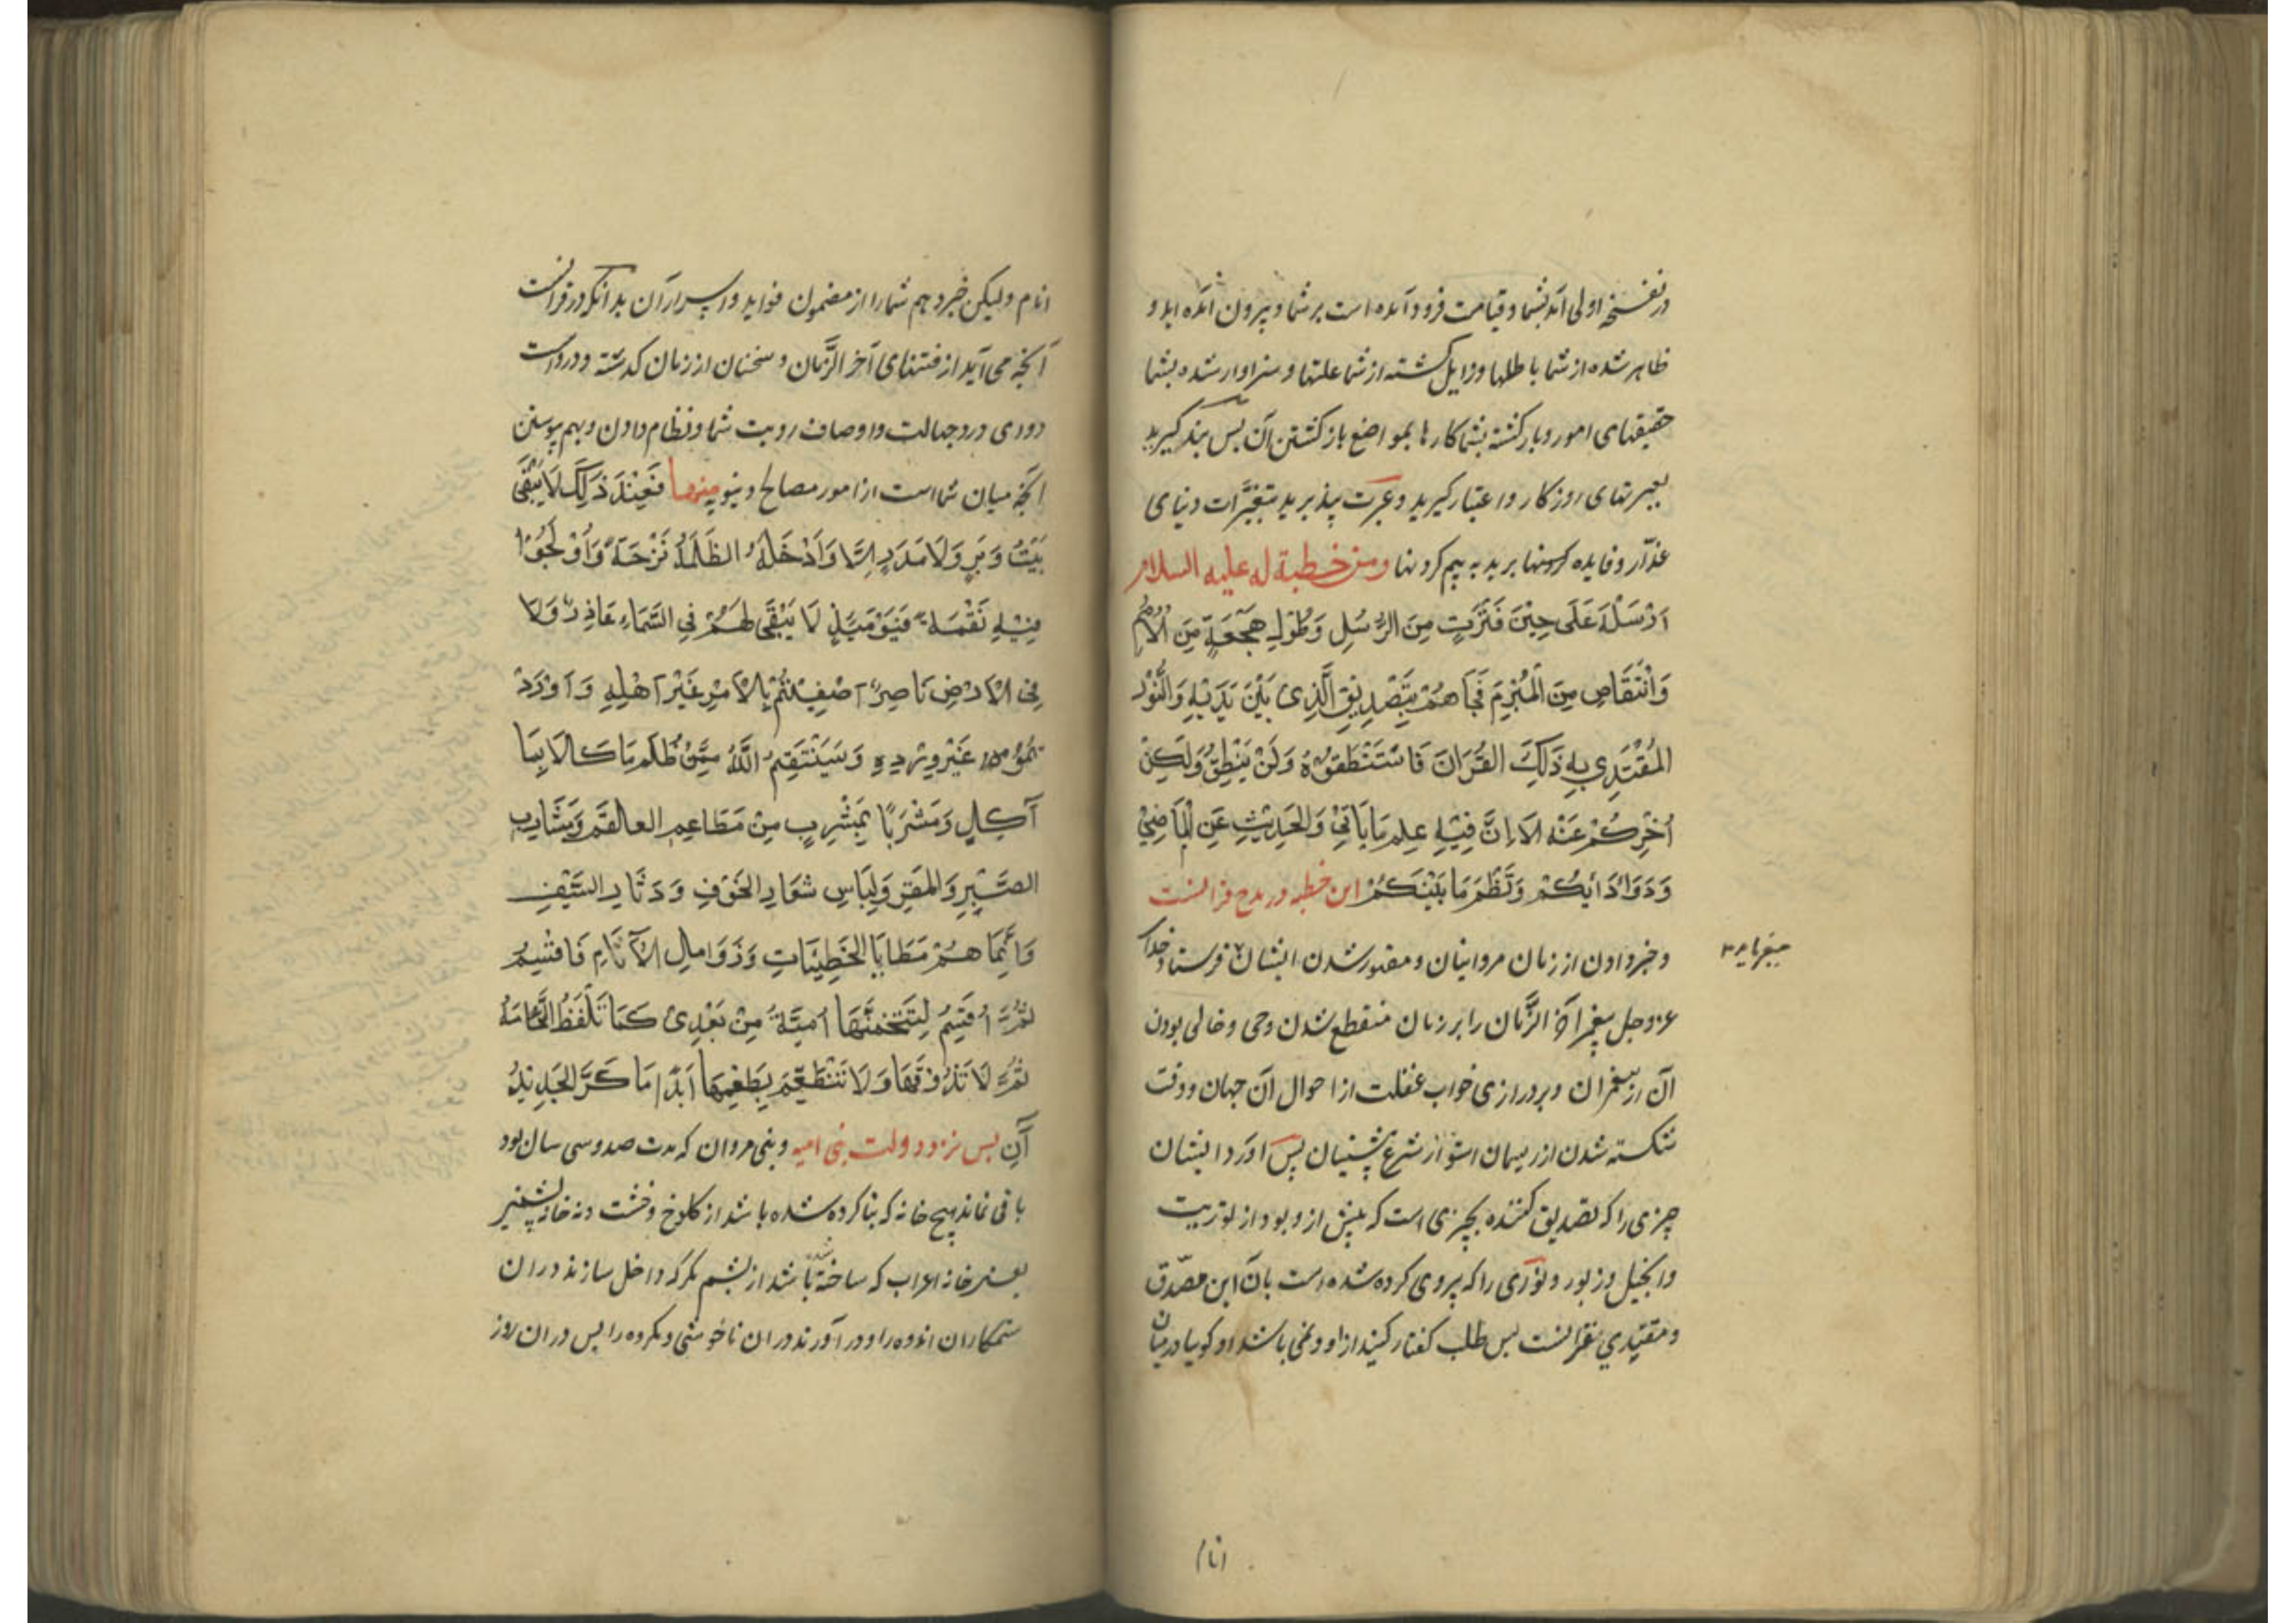 در نفسخهٔ اولی آمد بشما و قیامت فرود آمده است بر شما و بیرون آمده اید و
ظاهر شده از شما باطلها و زایل کشته از شما علتها و سزاوار شده بشما
حقیقتهای امور و باز کشته بشما کارها بمواضع باز کشتن آن پس پند کیرید
بعبرتهای روزکار و اعتبار کیرید و عبرت پذیرید بتغیّرات دنیای
غدّار و فایده بریده به بیم کردنها ومن خطبة له علیه السلام
اَرْسَلَهُ عَلَی حِیْنَ فَتْرَتٍ مِنَ الرُّسُلِ وَطُوْلِ هَجْعَةٍ مِنَ الْاُمَمِ
وَانْتِقَاصٍ مِنَ الْمُبْرَمِ فَجَاَهُمْ بِتَصْدِیْقِ الَّذِی بَیْنَ یَدَیْهِ وَالنُّوْرِ
المُقْتَدِی بِهِ ذَلِکَ القُرَانَ فَاسْتَنْطَقُوْهُ وَلَنْ یَنْطِقُ وَلَکِنْ
اُخْبِرُکُمْ عَنْه الَا اِنَّ فِیْهِ عِلم مَا یَاتِیْ وَالحَدِیْثِ عَنِ الْمَاضِیْ
وَدَوَاءَ دَائِکُمْ وَنَظْمَ مَا بَیْنَکُمْ این خطبه در مدح قرآنست
و خبر دادن از زمان مروانیان و مقهور شدن ایشان فرستاد خدای
میفرماید
عز وجل پیغمبر آخر الزَّمان را بر زمان منقطع شدن وحی و خالی بودن
آن از پیغمبران و بر درازی خواب غفلت از احوال آن جهان و وقت
شکسته شدن از ریسمان استوار شرع پیشینیان پس آورد ایشان
چیزی را که تصدیق کننده بچیزی است که پیش از و بود از توریت
و انجیل و زبور و نوری را که پیروی کرده شده است بآن این مصدّق
و مقتدی قرآنست پس طلب کفتار کنید از او و نمی باشد او کویا در میان
انام
انام ولیکن خبر دهم شما را از مضمون فواید و اسرار آن بدانکه در قرآنست
آنچه می آید از فتنهای آخر الزَّمان و سخنان از زمان کذشته و در وست
دوای درد جهالت و اوصاف رویت شما و نظام دادن و بهم پیوستن
آنچه میان شما است از امور مصالح دینویه منها فَعِنْدَ ذَلِکَ لَا یَبْقَی
بَیْتُ وَبَرٍ وَلَا مَدَرٍ اِلَّا وَاَدْخَلَهُ الظَلَمَةُ تَرْحَةً وَاَوْلَجُوْا
فِیْهِ نَقْمَةً فَیَوْمَئِذٍ لَا یَبْقَی لَهُمْ فِی السَّمَاءِ عَاذِرٌ وَلَا
فِی الْاَرْضِ نَاصِرٌ اَصْفَیْتُمْ بِالْاَمْرِ غَیْرَ اَهْلِهِ وَاَوْرَدْ
تُمُوْهُ غَیْرَ وِرْدِهِ وَسَیَنْتَقِمُ اللَّهُ مِمَّنْ ظَلَم مَاکَالَا بِمَا
آکِلٍ وَمَشْرَبًا بِمَشْرِبٍ مِنْ مَطَاعِمِ العالقَمِ وَمَشَارِبِ
الصَّبِرِ وَالمَقِرِ وَلِبَاسِ شعَارِ الخَوْفِ وَدَثَارِ السَّیْفِ
وَاِنَّمَا هُمْ مَطَایَا الخَطِیْئَاتِ وَزَوَامِلِ الْآثَامِ فَاقْسِمُ
ثُمَّ اُقْسِمُ لِتَنَخَمَنَّهَا اُمَیَّةُ مِنْ بَعْدِیْ کَمَا تَلْفَظُ النُّخَامَةُ
ثُمَّ لَا تَذُوْقُهَا وَلَا تَتَطَعَّمُ بِطَعْمِهَا اَبَدًا مَا کَرَّ الجَدِیْدُ
آنِ پس نزد دولت بنی امیه و بنی مروان که مدت صد و سی سال بود
باقی نماند هیچ خانه که بنا کرده شده باشد از کلوخ و خشت و نه خانه پشمین
یعنی خانه اعراب که ساخته شده باشد از پشم مکر که داخل سازند در ان
ستمکاران اندوه را و در آورند در ان ناخوشی و مکروه را پس در ان روز